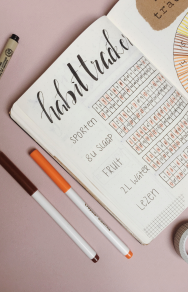 habit tracker
SPORTEN
8u SLAAP
FRUIT
2L WATER
LEZEN
tra